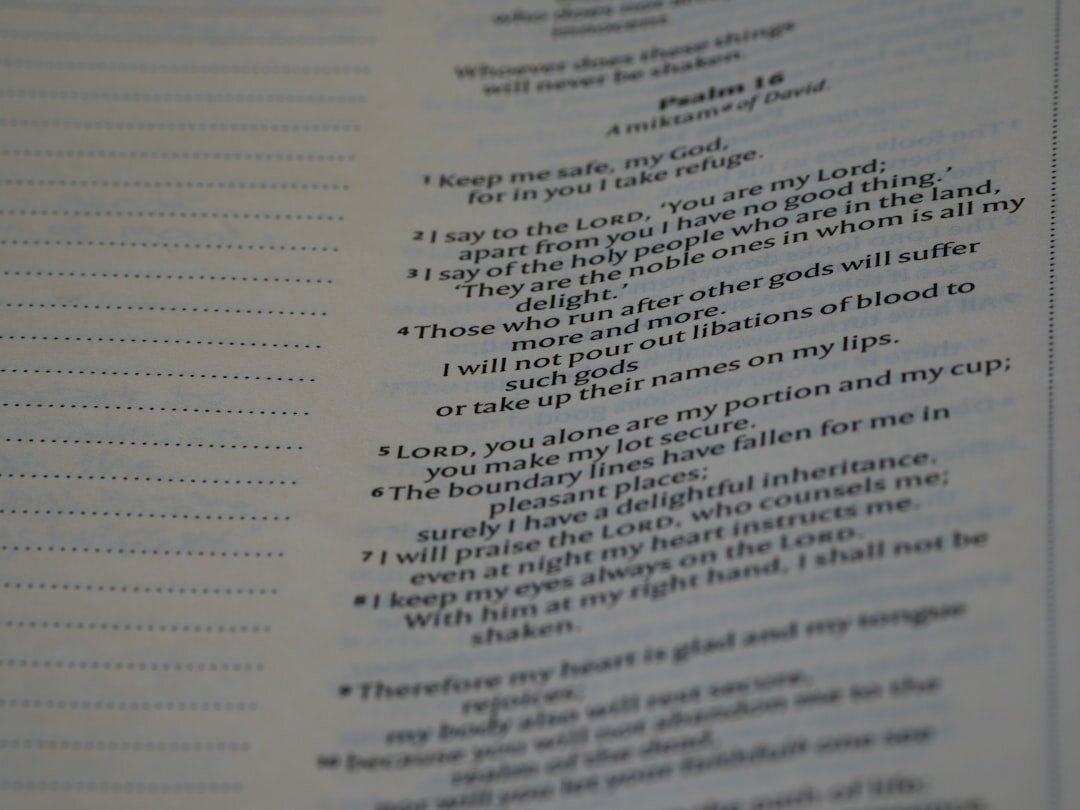 who does
innocent.
Whoever does these things
will never be shaken.
Psalm 16
A miktam of David.
1 Keep me safe, my God,
for in you I take refuge.
2 I say to the LORD, ‘You are my Lord;
apart from you I have no good thing.’
3 I say of the holy people who are in the land,
‘They are the noble ones in whom is all my
delight.’
4 Those who run after other gods will suffer
more and more.
I will not pour out libations of blood to
such gods
or take up their names on my lips.
5 LORD, you alone are my portion and my cup;
you make my lot secure.
6 The boundary lines have fallen for me in
pleasant places;
surely I have a delightful inheritance.
7 I will praise the LORD, who counsels me;
even at night my heart instructs me.
8 I keep my eyes always on the LORD.
With him at my right hand, I shall not be
shaken.
9 Therefore my heart is glad and my tongue
rejoices;
my body also will rest secure,
10 because you will not abandon me to the
realm of the dead,
will you let your faithful one see
path of life;